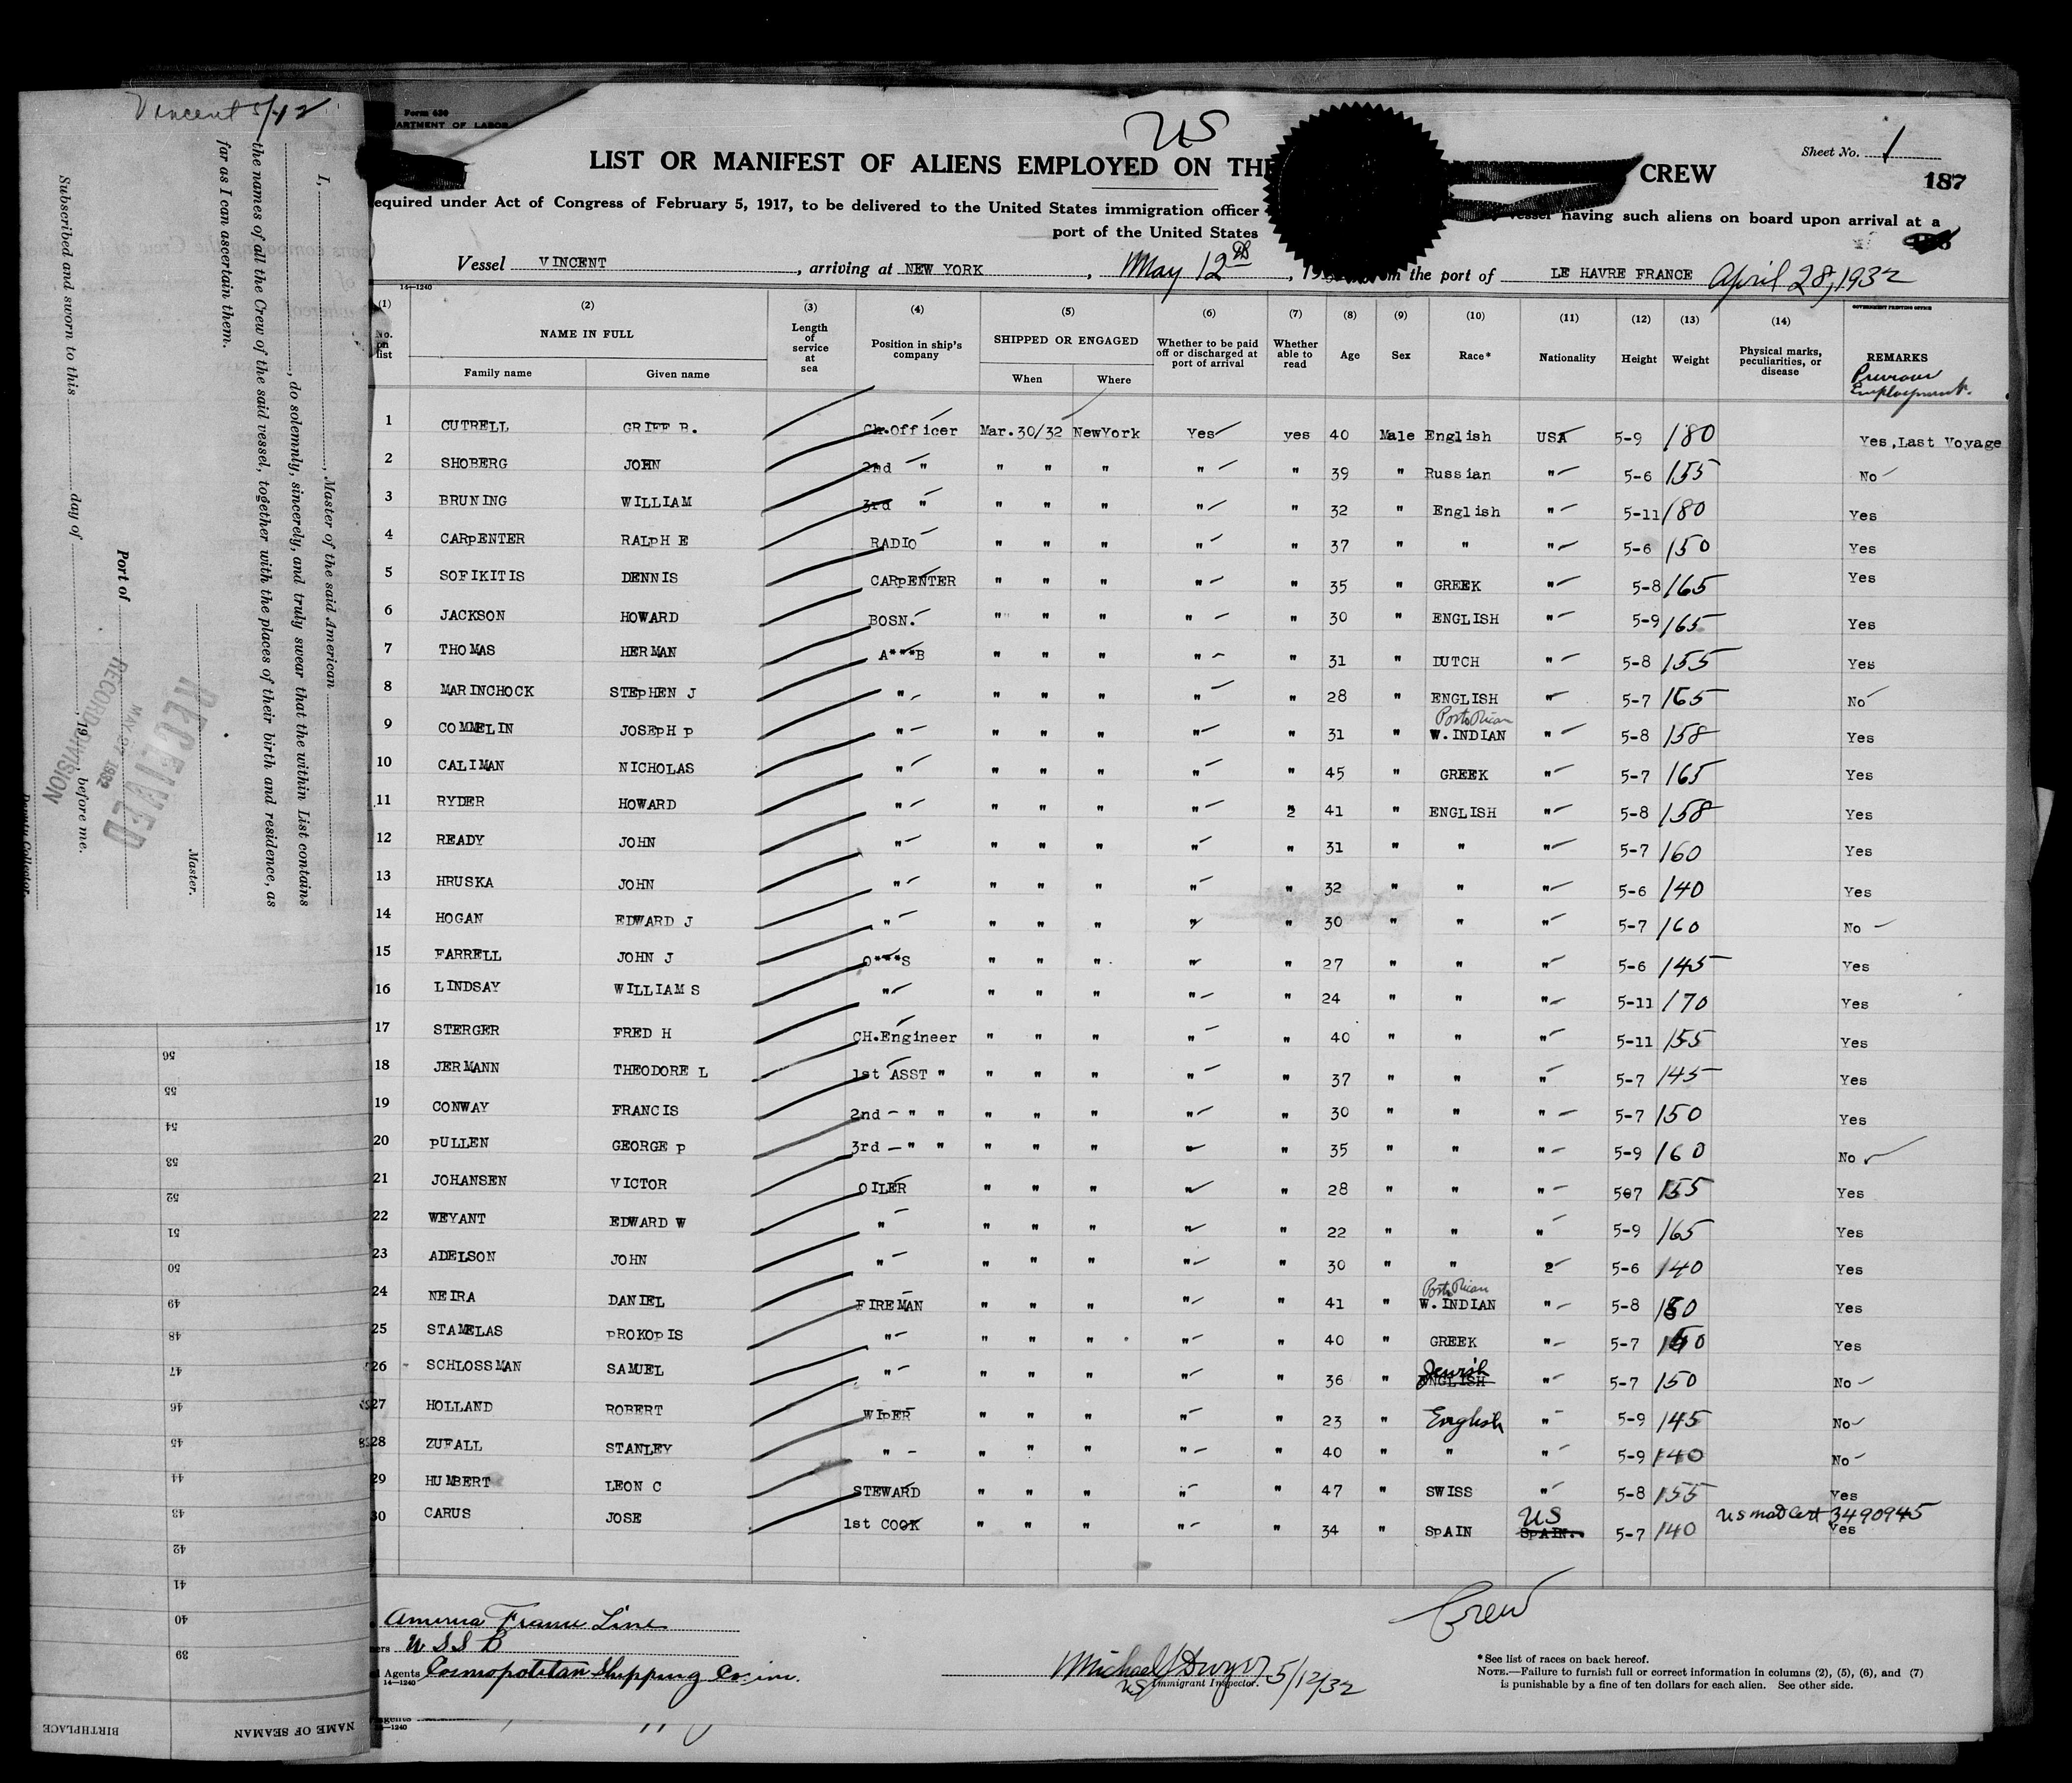 Vincent 5/12
I, , Master of the said American
, do solemnly, sincerely, and truly swear that the within List contains
the names of all the Crew of the said vessel, together with the places of their birth and residence, as
far as I can ascertain them.
Master.
Subscribed and sworn to this day of , 19 , before me.
Port of
Deputy Collector.
RECEIVED
MAY 27 1932
RECORD DIVISION
56
55
54
53
52
51
50
49
48
47
46
45
44
43
42
41
40
39
NAME OF SEAMAN BIRTHPLACE
Form 630
ARTMENT OF LABOR
US
Sheet No. 1
LIST OR MANIFEST OF ALIENS EMPLOYED ON THE CREW
187
equired under Act of Congress of February 5, 1917, to be delivered to the United States immigration officer vessel having such aliens on board upon arrival at a
port of the United States
Vessel VINCENT , arriving at NEW YORK , May 12th , 19 the port of LE HAVRE FRANCE April 28, 1932
14-1240
GOVERNMENT PRINTING OFFICE
(1) (2) (3) (4) (5) (6) (7) (8) (9) (10) (11) (12) (13) (14)
No. on list NAME IN FULL Length of service at sea Position in ship's company SHIPPED OR ENGAGED Whether to be paid off or discharged at port of arrival Whether able to read Age Sex Race* Nationality Height Weight Physical marks, peculiarities, or disease REMARKS
Family name Given name When Where Previous Employment.
1 CUTRELL GRIFF B. Ch.Officer Mar.30/32 NewYork Yes yes 40 Male English USA 5-9 180 Yes,Last Voyage
2 SHOBERG JOHN 2nd " " " " " " 39 " Russian " 5-6 155 No
3 BRUNING WILLIAM 3rd " " " " " " 32 " English " 5-11 180 Yes
4 CARpENTER RALpH E RADIO " " " " " 37 " " " 5-6 150 Yes
5 SOFIKITIS DENNIS CARpENTER " " " " " 35 " GREEK " 5-8 165 Yes
6 JACKSON HOWARD BOSN. " " " " " 30 " ENGLISH " 5-9 165 Yes
7 THOMAS HERMAN A***B " " " " " 31 " DUTCH " 5-8 155 Yes
8 MARINCHOCK STEpHEN J " " " " " " 28 " ENGLISH " 5-7 165 No
9 COMMELIN JOSEpH p " " " " " " 31 " Porto Rican W.INDIAN " 5-8 158 Yes
10 CALIMAN NICHOLAS " " " " " " 45 " GREEK " 5-7 165 Yes
11 RYDER HOWARD " " " " " 2 41 " ENGLISH " 5-8 158 Yes
12 READY JOHN " " " " " " 31 " " " 5-7 160 Yes
13 HRUSKA JOHN " " " " " " 32 " " " 5-6 140 Yes
14 HOGAN EDWARD J " " " " " " 30 " " " 5-7 160 No
15 FARRELL JOHN J O***S " " " " " 27 " " " 5-6 145 Yes
16 LINDSAY WILLIAM S " " " " " " 24 " " " 5-11 170 Yes
17 STERGER FRED H CH.Engineer " " " " " 40 " " " 5-11 155 Yes
18 JERMANN THEODORE L 1st ASST " " " " " " 37 " " " 5-7 145 Yes
19 CONWAY FRANCIS 2nd - " " " " " " " 30 " " " 5-7 150 Yes
20 pULLEN GEORGE p 3rd - " " " " " " " 35 " " " 5-9 160 No
21 JOHANSEN VICTOR OILER " " " " " 28 " " " 567 155 Yes
22 WEYANT EDWARD W " " " " " " 22 " " " 5-9 165 Yes
23 ADELSON JOHN " " " " " " 30 " " 2 5-6 140 Yes
24 NEIRA DANIEL FIREMAN " " " " " 41 " Porto Rican W.INDIAN " 5-8 Yes
25 STAMELAS pROKOpIS " " " " " " 40 " GREEK " 5-7 Yes
26 SCHLOSSMAN SAMUEL " " " " " " 36 " Jewish ENGLISH " 5-7 150 No
27 HOLLAND ROBERT WIpER " " " " " 23 " English " 5-9 145 No
28 ZUFALL STANLEY " " " " " " 40 " " " 5-9 140 No
29 HUMBERT LEON C STEWARD " " " " " 47 " SWISS " 5-8 155 Yes
30 CARUS JOSE 1st COOK " " " " " 34 " SpAIN US SpAIN. 5-7 140 US nat Cert 3490945 Yes
America France Line
ners U S S B
Agents Cosmopolitan Shipping Co inc.
14-1240
Crew
Michael J Dwyer 5/12/32
US Immigrant Inspector.
*See list of races on back hereof.
NOTE.—Failure to furnish full or correct information in columns (2), (5), (6), and (7)
is punishable by a fine of ten dollars for each alien. See other side.